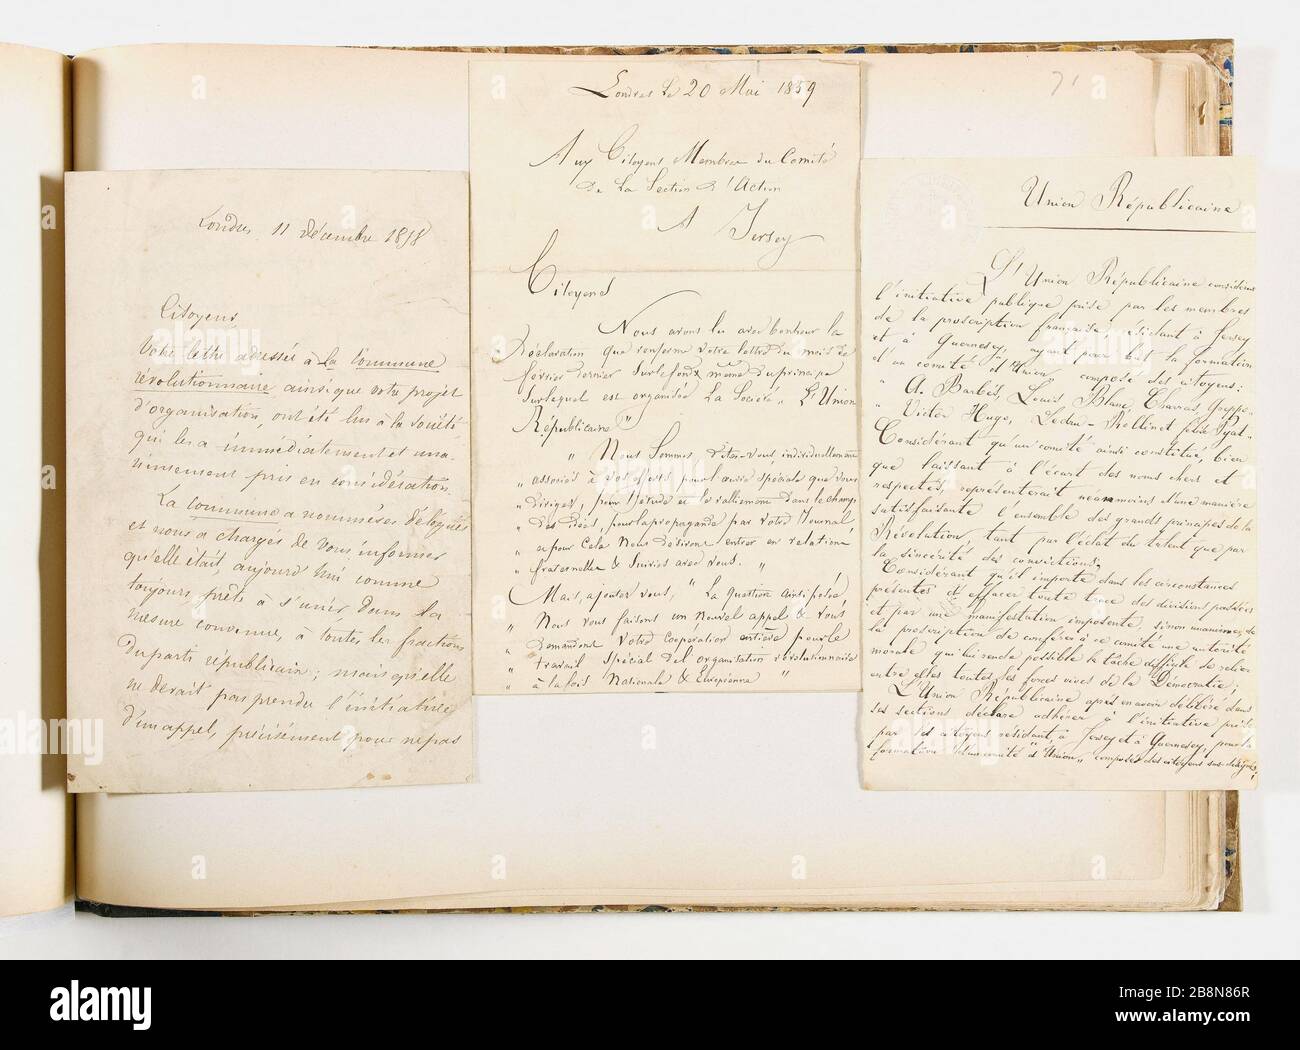 71
Londres 11 décembre 1858
Citoyens
Votre lettre adressée à la Commune
révolutionnaire ainsi que votre projet
d'organisation, ont été lus à la société
qui les a immédiatement et una-
nimement pris en considération.
La commune a nommé ses délégués
et nous a chargés de vous informer
qu'elle était, aujourd'hui comme
toujours, prête à s'unir dans la
mesure convenue, à toutes les fractions
du parti républicain; mais qu'elle
ne devait pas prendre l'initiative
d'un appel, précisément pour ne pas
Londres le 20 Mai 1859
Aux Citoyens Membres du Comité
De La Section d'Action
A Jersey
Citoyens
Nous avons lu avec bonheur la
Déclaration que renferme votre lettre du mois de
février dernier sur le fond même du principe
sur lequel est organisée La Société " L'Union
Républicaine "
" Nous Sommes, dites-vous, individuellement
" associés à vos efforts pour l'œuvre spéciale que vous
" Dirigez, pour l'étude et le ralliement dans le champ
" Des idées, pour la propagande par votre Journal,
" & pour cela Nous désirons entrer en relations
" fraternelles & suivies avec vous. "
Mais, ajoutez vous, " La question ainsi posée,
" Nous vous faisons un nouvel appel & vous
" Demandons votre coopération entière pour le
" travail spécial de l'organisation révolutionnaire
" à la fois Nationale & Européenne "
Union Républicaine
L'Union Républicaine considérant
l'initiative publique prise par les membres
de la proscription française, résidant à Jersey
et à Guernesey, ayant pour but la formation
d'un comité d'"Union" composé des citoyens:
" A. Barbès, Louis Blanc, Charras, Greppo-
" Victor Hugo, Ledru-Rollin et félix Pyat-
Considérant qu'un comité ainsi constitué, bien
que laissant à l'écart des noms chers et
respectés, représenterait néanmoins d'une manière
satisfaisante l'ensemble des grands principes de la
Révolution, tant par l'éclat du talent que par
la sincérité des convictions,
Considérant qu'il importe dans les circonstances
présentes d'effacer toute trace des divisions passées
et par une manifestation imposante, sinon unanime, de
la proscription de conférer à ce comité une autorité
morale qui lui rende possible la tâche difficile de relier
entre elles toutes les forces vives de la Démocratie;
L'Union Républicaine après en avoir délibéré dans
ses sections déclare adhérer à l'initiative prise
par les citoyens résidant à Jersey et à Guernesey, pour la
formation d'un comité d'"Union" composé des citoyens sus-désignés;
alamy
Image ID: 2B8N86R
www.alamy.com